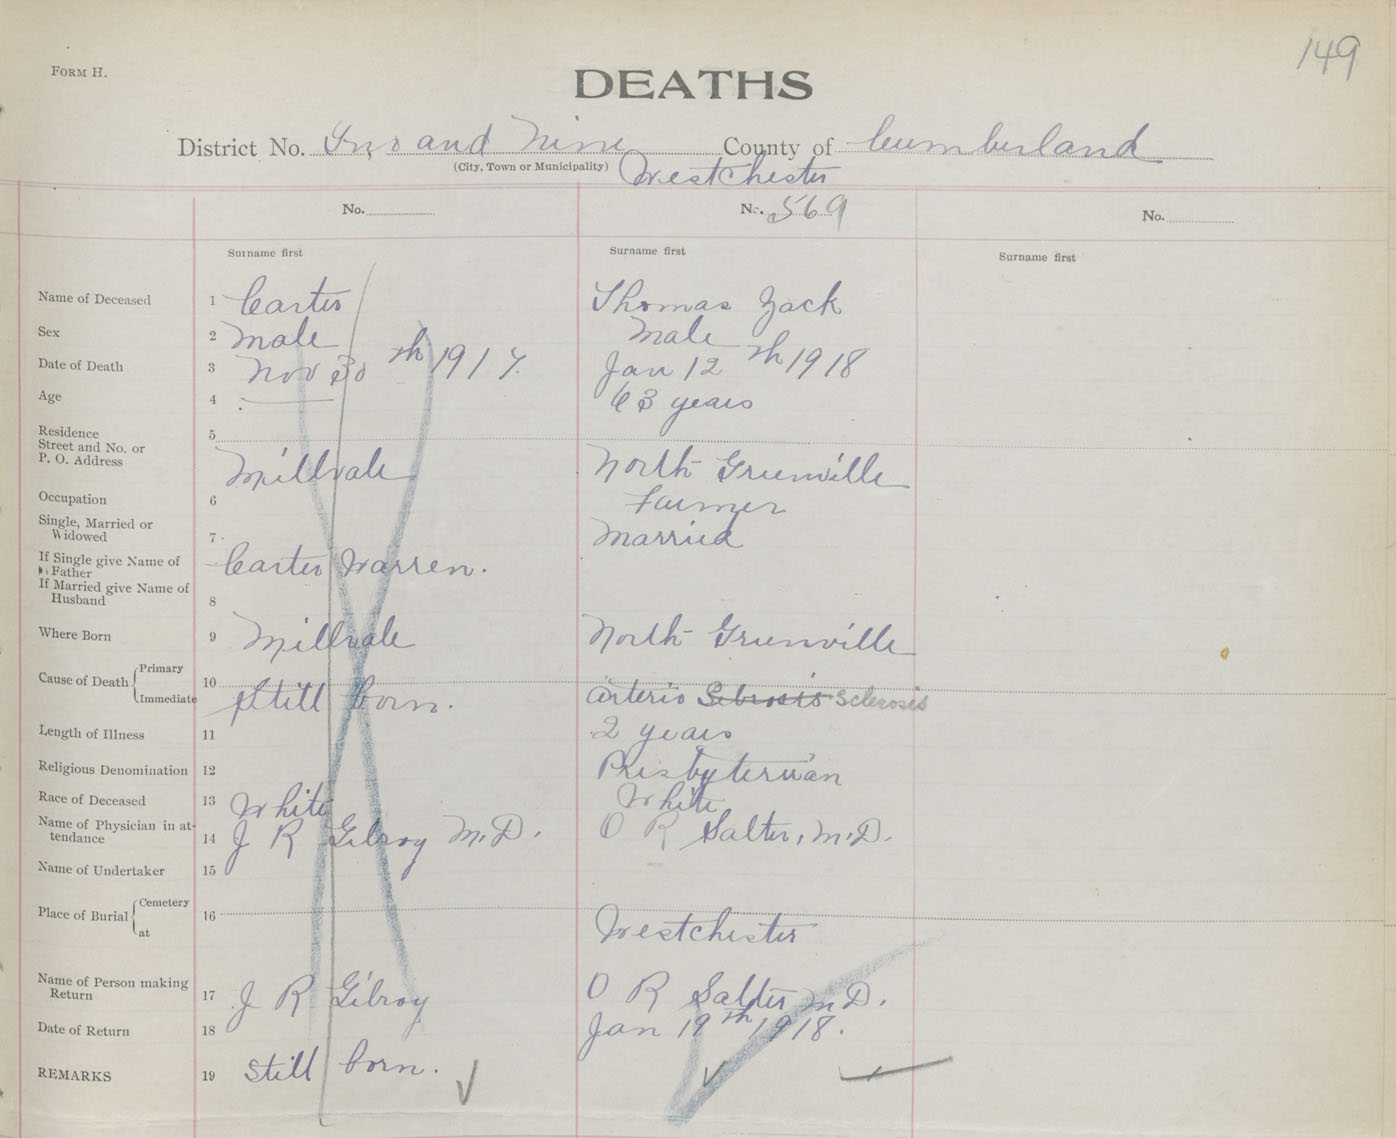 149
FORM H.
DEATHS
District No. Two and Nine County of Cumberland
(City, Town or Municipality) Westchester
No. No. 569 No.
Surname first Surname first Surname first
Name of Deceased 1 Carter Thomas Zack
Sex 2 Male Male
Date of Death 3 Nov 30th 1917. Jan 12th 1918
Age 4 63 years
Residence
Street and No. or
P. O. Address 5 Millvale North Grenville
Occupation 6 Farmer
Single, Married or
Widowed 7 Married
If Single give Name of
Father Carter Warren.
If Married give Name of
Husband 8
Where Born 9 Millvale North Grenville
Cause of Death { Primary
Immediate 10 Still born. Arterio Sclrosis Sclerosis
Length of Illness 11 2 years
Religious Denomination 12 Presbyterian
Race of Deceased 13 White White
Name of Physician in at-
tendance 14 J R Gilroy M.D. O R Salter, M.D.
Name of Undertaker 15
Place of Burial { Cemetery
at 16 Westchester
Name of Person making
Return 17 J R Gilroy O R Salter M D.
Date of Return 18 Jan 19th 1918.
REMARKS 19 Still born.